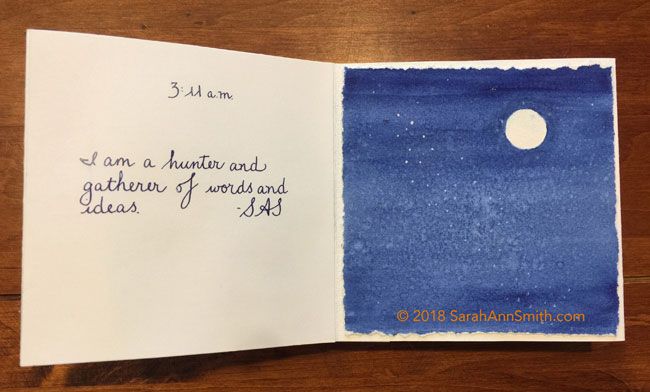 3:11 a.m.
I am a hunter and
gatherer of words and
ideas. -SAS
© 2018 SarahAnnSmith.com